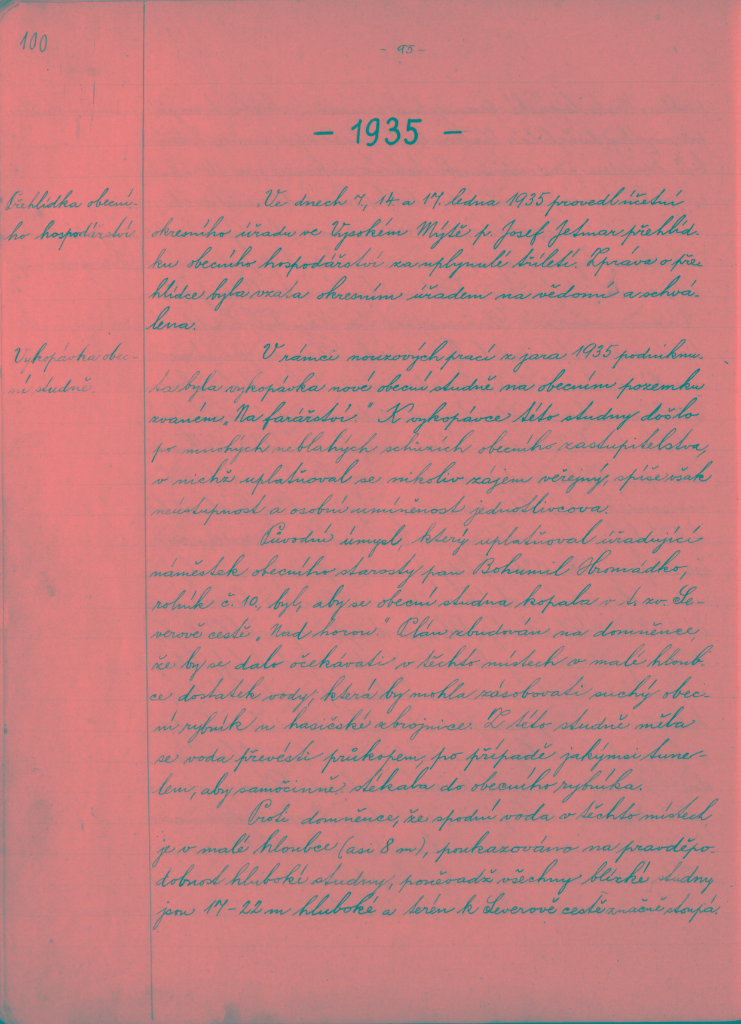 100
- 95 -
- 1935 -
Přehlídka obecní-
ho hospodářství.
Ve dnech 7, 14 a 17. ledna 1935 provedl účetní
okresního úřadu ve Vysokém Mýtě p. Josef Jetmar přehlíd-
ku obecního hospodářství za uplynulé tříletí. Zpráva o pře-
hlídce byla vzata okresním úřadem na vědomí a schvá-
lena.
Vykopávka obec-
ní studně.
V rámci nouzových prací z jara 1935 podniknu-
ta byla vykopávka nové obecní studně na obecním pozemku
zvaném „Na farářství." K vykopávce této studny došlo
po mnohých neblahých schůzích obecního zastupitelstva,
v nichž uplatňoval se nikoliv zájem veřejný, spíše však
neústupnost a osobní umíněnost jednotlivcova.
Původní úmysl, který uplatňoval úřadující
náměstek obecního starosty pan Bohumil Hromádko,
rolník č. 10, byl, aby se obecní studna kopala v t. zv. Se-
verově cestě „Nad horou." Plán zbudován na domněnce,
že by se dalo očekávati v těchto místech v malé hloub-
ce dostatek vody, která by mohla zásobovati suchý obec-
ní rybník u hasičské zbrojnice. Z této studně měla
se voda převésti průkopem, po případě jakýmsi tune-
lem, aby samočinně stékala do obecního rybníka.
Proti domněnce, že spodní voda v těchto místech
je v malé hloubce (asi 8 m), poukazováno na pravděpo-
dobnost hluboké studny, poněvadž všechny blízké studny
jsou 17-22 m hluboké a terén k Severově cestě značně stoupá.